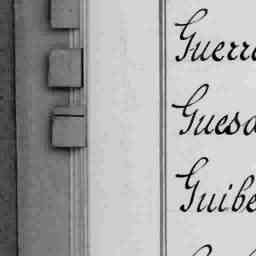 Guerr
Guesd
Guibe